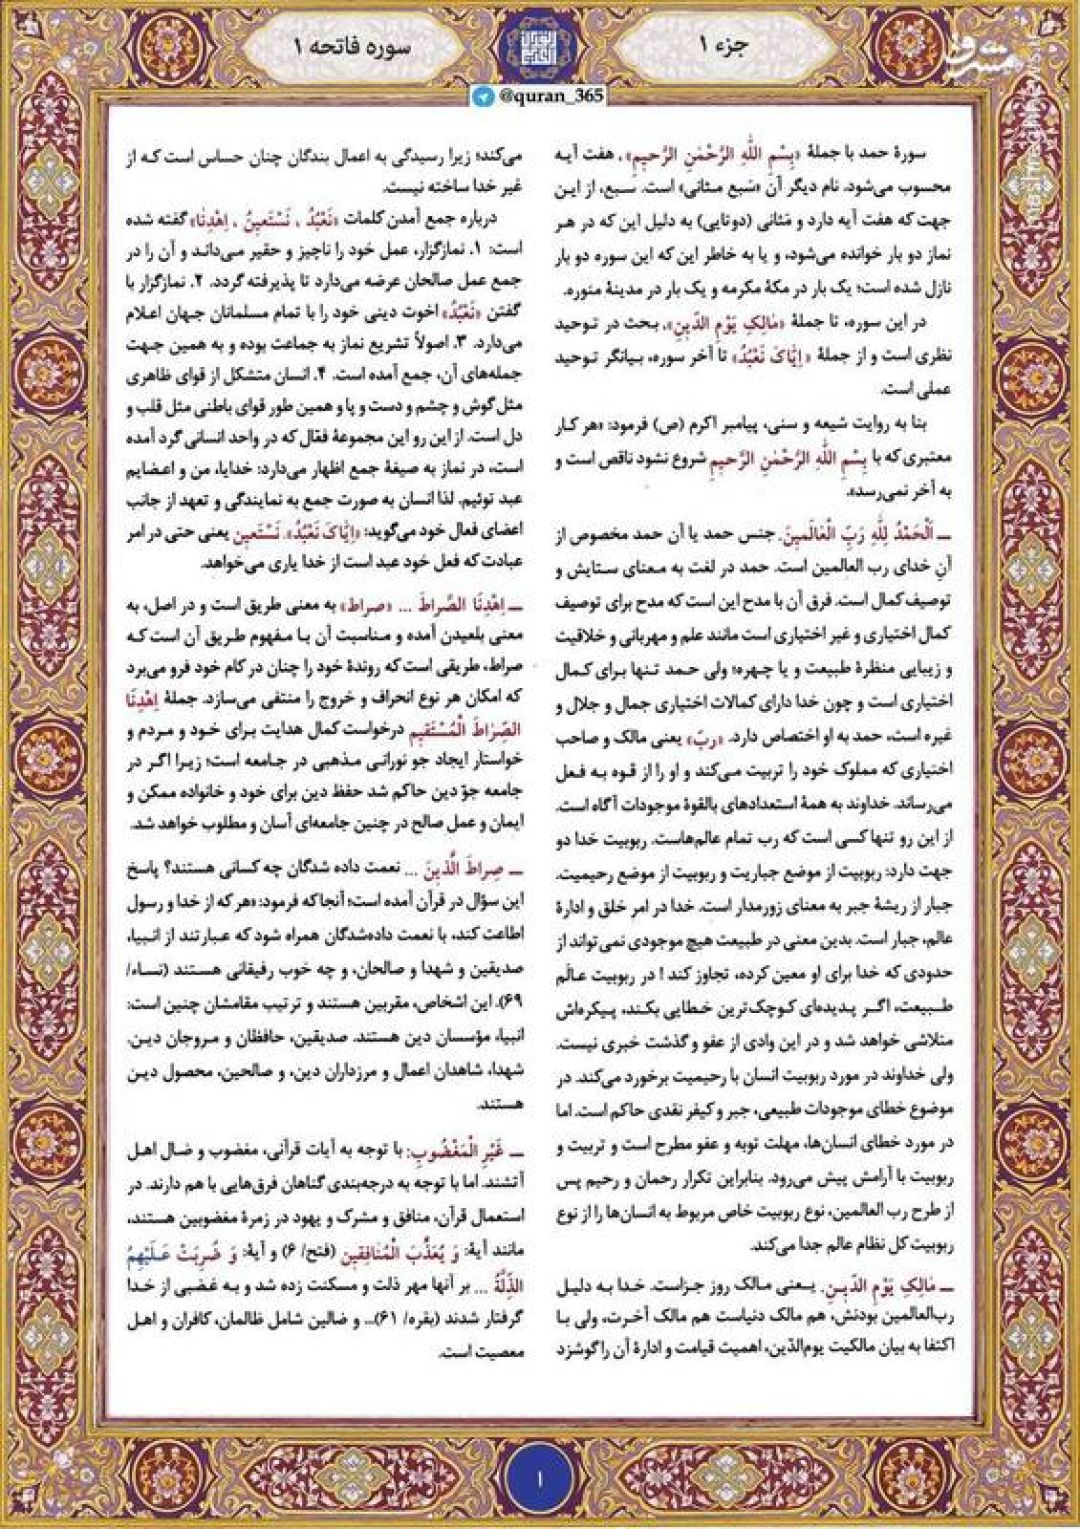 جزء ۱
سوره فاتحه ۱
مشرق
mashreghnews
@quran_365
سورهٔ حمد با جملهٔ «بِسْمِ اللَّهِ الرَّحْمٰنِ الرَّحیمِ»، هفت آیه
محسوب می‌شود. نام دیگر آن «سَبع مثانی» است. سبع، از این
جهت که هفت آیه دارد و مَثانی (دوتایی) به دلیل این که در هر
نماز دو بار خوانده می‌شود، و یا به خاطر این که این سوره دو بار
نازل شده است؛ یک بار در مکهٔ مکرمه و یک بار در مدینهٔ منوره.
در این سوره، تا جملهٔ «مٰالِکِ یَوْمِ الدّینِ»، بحث در توحید
نظری است و از جملهٔ «اِیّٰاکَ نَعْبُدُ» تا آخر سوره، بیانگر توحید
عملی است.
بنا به روایت شیعه و سنی، پیامبر اکرم (ص) فرمود: «هر کار
معتبری که با بِسْمِ اللَّهِ الرَّحْمٰنِ الرَّحیمِ شروع نشود ناقص است و
به آخر نمی‌رسد».
ـ اَلْحَمْدُ لِلّٰهِ رَبِّ الْعٰالَمینَ. جنس حمد یا آن حمد مخصوص از
آنِ خدای رب العالمین است. حمد در لغت به معنای ستایش و
توصیف کمال است. فرق آن با مدح این است که مدح برای توصیف
کمال اختیاری و غیر اختیاری است مانند علم و مهربانی و خلاقیت
و زیبایی منظرهٔ طبیعت و یا چهره؛ ولی حمد تنها برای کمال
اختیاری است و چون خدا دارای کمالات اختیاری جمال و جلال و
غیره است، حمد به او اختصاص دارد. «ربّ» یعنی مالک و صاحب
اختیاری که مملوک خود را تربیت می‌کند و او را از قوه به فعل
می‌رساند. خداوند به همهٔ استعدادهای بالقوهٔ موجودات آگاه است.
از این رو تنها کسی است که رب تمام عالم‌هاست. ربوبیت خدا دو
جهت دارد: ربوبیت از موضع جباریت و ربوبیت از موضع رحیمیت.
جبار از ریشهٔ جبر به معنای زورمدار است. خدا در امر خلق و ادارهٔ
عالم، جبار است. بدین معنی در طبیعت هیچ موجودی نمی‌تواند از
حدودی که خدا برای او معین کرده، تجاوز کند! در ربوبیت عالَم
طبیعت، اگر پدیده‌ای کوچک‌ترین خطایی بکند، پیکره‌اش
متلاشی خواهد شد و در این وادی از عفو و گذشت خبری نیست.
ولی خداوند در مورد ربوبیت انسان با رحیمیت برخورد می‌کند. در
موضوع خطای موجودات طبیعی، جبر و کیفر نقدی حاکم است. اما
در مورد خطای انسان‌ها، مهلت توبه و عفو مطرح است و تربیت و
ربوبیت با آرامش پیش می‌رود. بنابراین تکرار رحمان و رحیم پس
از طرح رب العالمین، نوع ربوبیت خاص مربوط به انسان‌ها را از نوع
ربوبیت کل نظام عالم جدا می‌کند.
ـ مٰالِکِ یَوْمِ الدّینِ. یعنی مالک روز جزاست. خدا به دلیل
رب‌العالمین بودنش، هم مالک دنیاست هم مالک آخرت، ولی با
اکتفا به بیان مالکیت یوم‌الدّین، اهمیت قیامت و ادارهٔ آن را گوشزد
می‌کند؛ زیرا رسیدگی به اعمال بندگان چنان حساس است که از
غیر خدا ساخته نیست.
درباره جمع آمدن کلمات «نَعْبُدُ ، نَسْتَعینُ ، اِهْدِنٰا» گفته شده
است: ۱. نمازگزار، عمل خود را ناچیز و حقیر می‌داند و آن را در
جمع عمل صالحان عرضه می‌دارد تا پذیرفته گردد. ۲. نمازگزار با
گفتن «نَعْبُدُ» اخوت دینی خود را با تمام مسلمانان جهان اعلام
می‌دارد. ۳. اصولاً تشریع نماز به جماعت بوده و به همین جهت
جمله‌های آن، جمع آمده است. ۴. انسان متشکل از قوای ظاهری
مثل گوش و چشم و دست و پا و همین طور قوای باطنی مثل قلب و
دل است. از این رو این مجموعهٔ فعّال که در واحد انسانی گرد آمده
است، در نماز به صیغهٔ جمع اظهار می‌دارد: خدایا، من و اعضایم
عبد توئیم. لذا انسان به صورت جمع به نمایندگی و تعهد از جانب
اعضای فعال خود می‌گوید: «اِیّٰاکَ نَعْبُدُ». نَسْتَعین یعنی حتی در امر
عبادت که فعل خود عبد است از خدا یاری می‌خواهد.
ـ اِهْدِنَا الصِّرٰاطَ ... «صراط» به معنی طریق است و در اصل، به
معنی بلعیدن آمده و مناسبت آن با مفهوم طریق آن است که
صراط، طریقی است که روندهٔ خود را چنان در کام خود فرو می‌برد
که امکان هر نوع انحراف و خروج را منتفی می‌سازد. جملهٔ اِهْدِنَا
الصِّرٰاطَ الْمُسْتَقیمِ درخواست کمال هدایت برای خود و مردم و
خواستار ایجاد جو نورانی مذهبی در جامعه است؛ زیرا اگر در
جامعه جوّ دین حاکم شد حفظ دین برای خود و خانواده ممکن و
ایمان و عمل صالح در چنین جامعه‌ای آسان و مطلوب خواهد شد.
ـ صِرٰاطَ الَّذینَ ... نعمت داده شدگان چه کسانی هستند؟ پاسخ
این سؤال در قرآن آمده است؛ آنجا که فرمود: «هر که از خدا و رسول
اطاعت کند، با نعمت داده‌شدگان همراه شود که عبارتند از انبیا،
صدیقین و شهدا و صالحان، و چه خوب رفیقانی هستند (نساء/
۶۹). این اشخاص، مقربین هستند و ترتیب مقامشان چنین است:
انبیا، مؤسسان دین هستند. صدیقین، حافظان و مروجان دین.
شهدا، شاهدان اعمال و مرزداران دین، و صالحین، محصول دین
هستند.
ـ غَیْرِ الْمَغْضُوبِ: با توجه به آیات قرآنی، مغضوب و ضال اهل
آتشند. اما با توجه به درجه‌بندی گناهان فرق‌هایی با هم دارند. در
استعمال قرآن، منافق و مشرک و یهود در زمرهٔ مغضوبین هستند،
مانند آیهٔ: وَ یُعَذِّبَ الْمُنٰافِقینَ (فتح/ ۶) و آیهٔ: وَ ضُرِبَتْ عَلَیْهِمُ
الذِّلَّةُ ... بر آنها مهر ذلت و مسکنت زده شد و به غضبی از خدا
گرفتار شدند (بقره/ ۶۱)... و ضالین شامل ظالمان، کافران و اهل
معصیت است.
۱